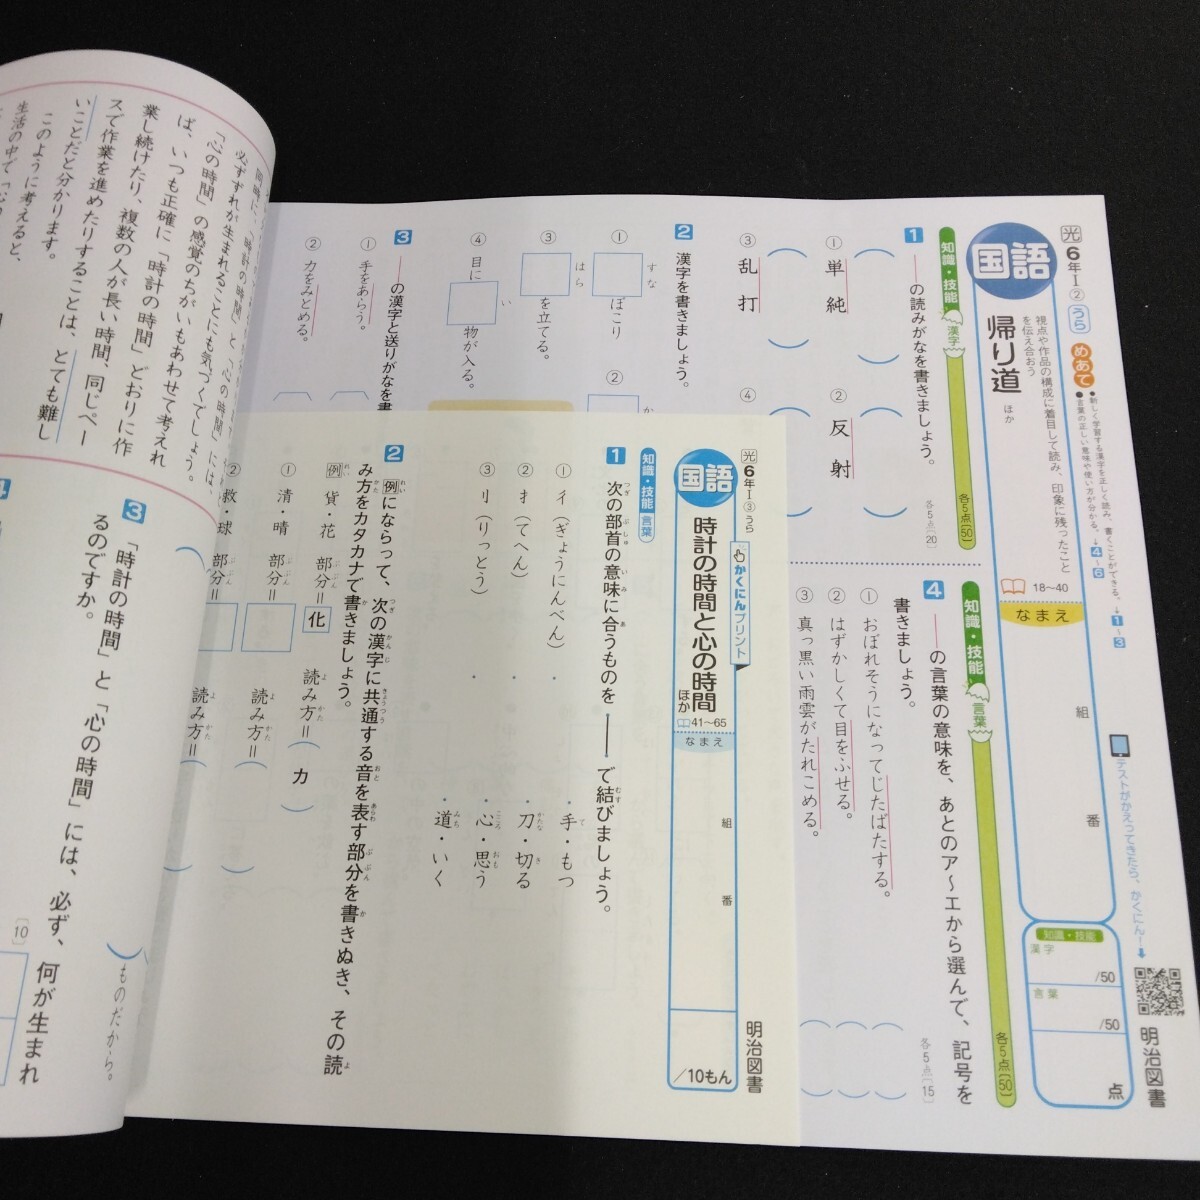 光6年Ⅰ②うら
国語
帰り道 ほか
視点や作品の構成に着目して読み、印象に残ったことを伝え合おう
18～40
めあて
●新しく学習する漢字を正しく読み、書くことができる。→1～3
●言葉の正しい意味や使い方が分かる。→4～6
なまえ
組
番
知識・技能
漢字
/50
言葉
/50
点
テストがかえってきたら、かくにん！
明治図書
知識・技能 漢字
各5点〔50〕
1 ――の読みがなを書きましょう。
各5点〔20〕
① 単純
② 反射
③ 乱打
④
2 漢字を書きましょう。
① すな ぼこり
②
③ はら を立てる。
④ 目に い 物が入る。
3 ――の漢字と送りがなを書
① 手をあらう。
② 力をみとめる。
知識・技能 言葉
各5点〔50〕
4 ――の言葉の意味を、あとのア～エから選んで、記号を書きましょう。
各5点〔15〕
① おぼれそうになってじたばたする。
② はずかしくて目をふせる。
③ 真っ黒い雨雲がたれこめる。
光6年Ⅰ③うら
かくにんプリント
国語
時計の時間と心の時間 ほか
41～65
なまえ
組
番
/10もん
明治図書
知識・技能 言葉
1 次の部首の意味に合うものを――で結びましょう。
① 彳（ぎょうにんべん）・
② 扌（てへん）・
③ 刂（りっとう）・
・手・もつ
・刀・切る
・心・思う
・道・いく
2 例にならって、次の漢字に共通する音を表す部分を書きぬき、その読み方をカタカナで書きましょう。
例 貨・花 部分＝化 読み方＝（カ）
① 清・晴 部分＝ 読み方＝（ ）
② 救・球 部分＝ 読み方＝（ ）
必ずずれが生まれることにも気づくでしょう。
「心の時間」の感覚のちがいもあわせて考えれ
ば、いつも正確に「時計の時間」どおりに作
業し続けたり、複数の人が長い時間、同じペー
スで作業を進めたりすることは、とても難し
いことだと分かります。
このように考えると、
3 「時計の時間」と「心の時間」には、必ず、何が生まれるのですか。
〔10〕
ものだから。